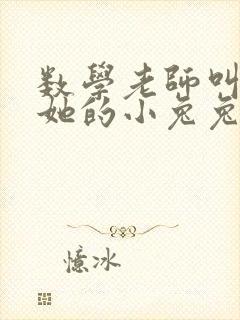 数學老師叫
她的小兔兔
憶冰